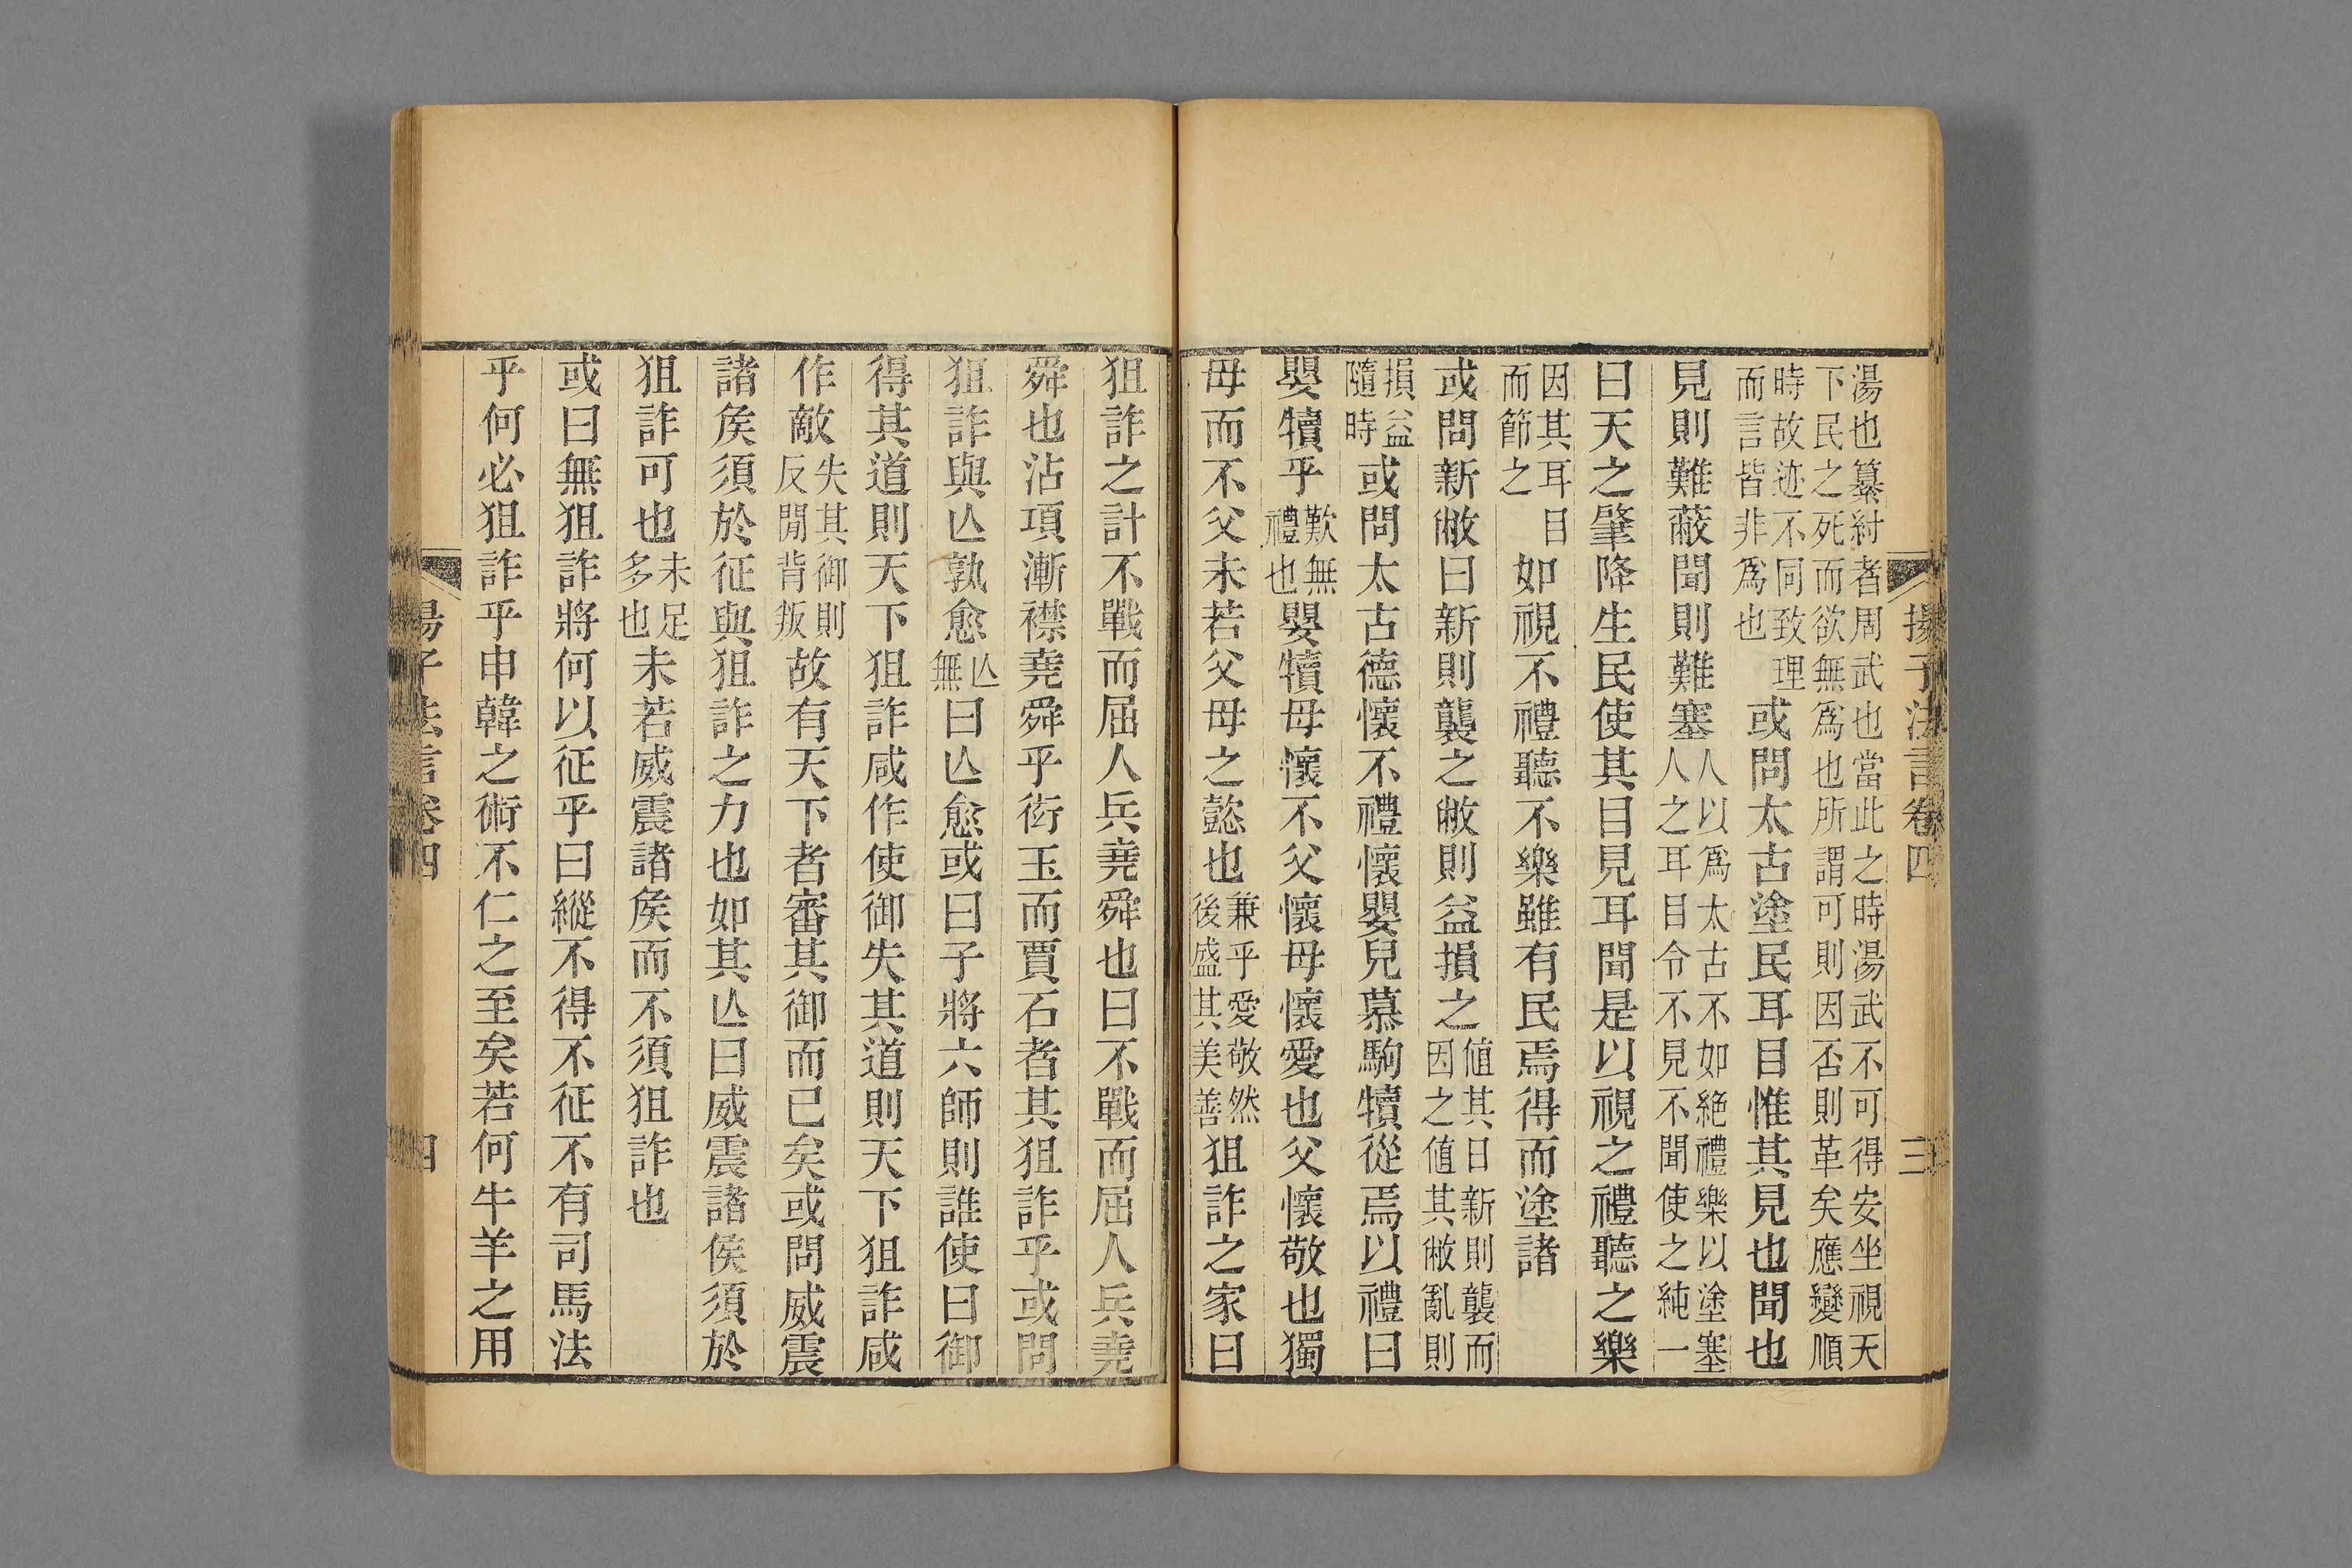 揚子法言卷四　三
湯也纂紂者周武也當此之時湯武不可得安坐視天
下民之死而欲無爲也所謂可則因否則革矣應變順
時故迹不同致理
而言皆非爲也
或問太古塗民耳目惟其見也聞也
見則難蔽聞則難塞
人以爲太古不如絶禮樂以塗塞
人之耳目令不見不聞使之純一
曰天之肇降生民使其目見耳聞是以視之禮聽之樂
因其耳目
而節之
如視不禮聽不樂雖有民焉得而塗諸
或問新敝曰新則襲之敝則益損之
値其日新則襲而
因之値其敝亂則
損益
隨時
或問太古德懷不禮懷嬰兒慕駒犢從焉以禮曰
嬰犢乎
歎無
禮也
嬰犢母懷不父懷母懷愛也父懷敬也獨
母而不父未若父母之懿也
兼乎愛敬然
後盛其美善
狙詐之家曰
狙詐之計不戰而屈人兵堯舜也曰不戰而屈人兵堯
舜也沾項漸襟堯舜乎衒玉而賈石者其狙詐乎或問
狙詐與亾孰愈
亾
無
曰亾愈或曰子將六師則誰使曰御
得其道則天下狙詐咸作使御失其道則天下狙詐咸
作敵
失其御則
反閒背叛
故有天下者審其御而已矣或問威震
諸矦須於征與狙詐之力也如其亾曰威震諸侯須於
狙詐可也
未足
多也
未若威震諸矦而不須狙詐也
或曰無狙詐將何以征乎曰縱不得不征不有司馬法
乎何必狙詐乎申韓之術不仁之至矣若何牛羊之用
揚子法言卷四　四